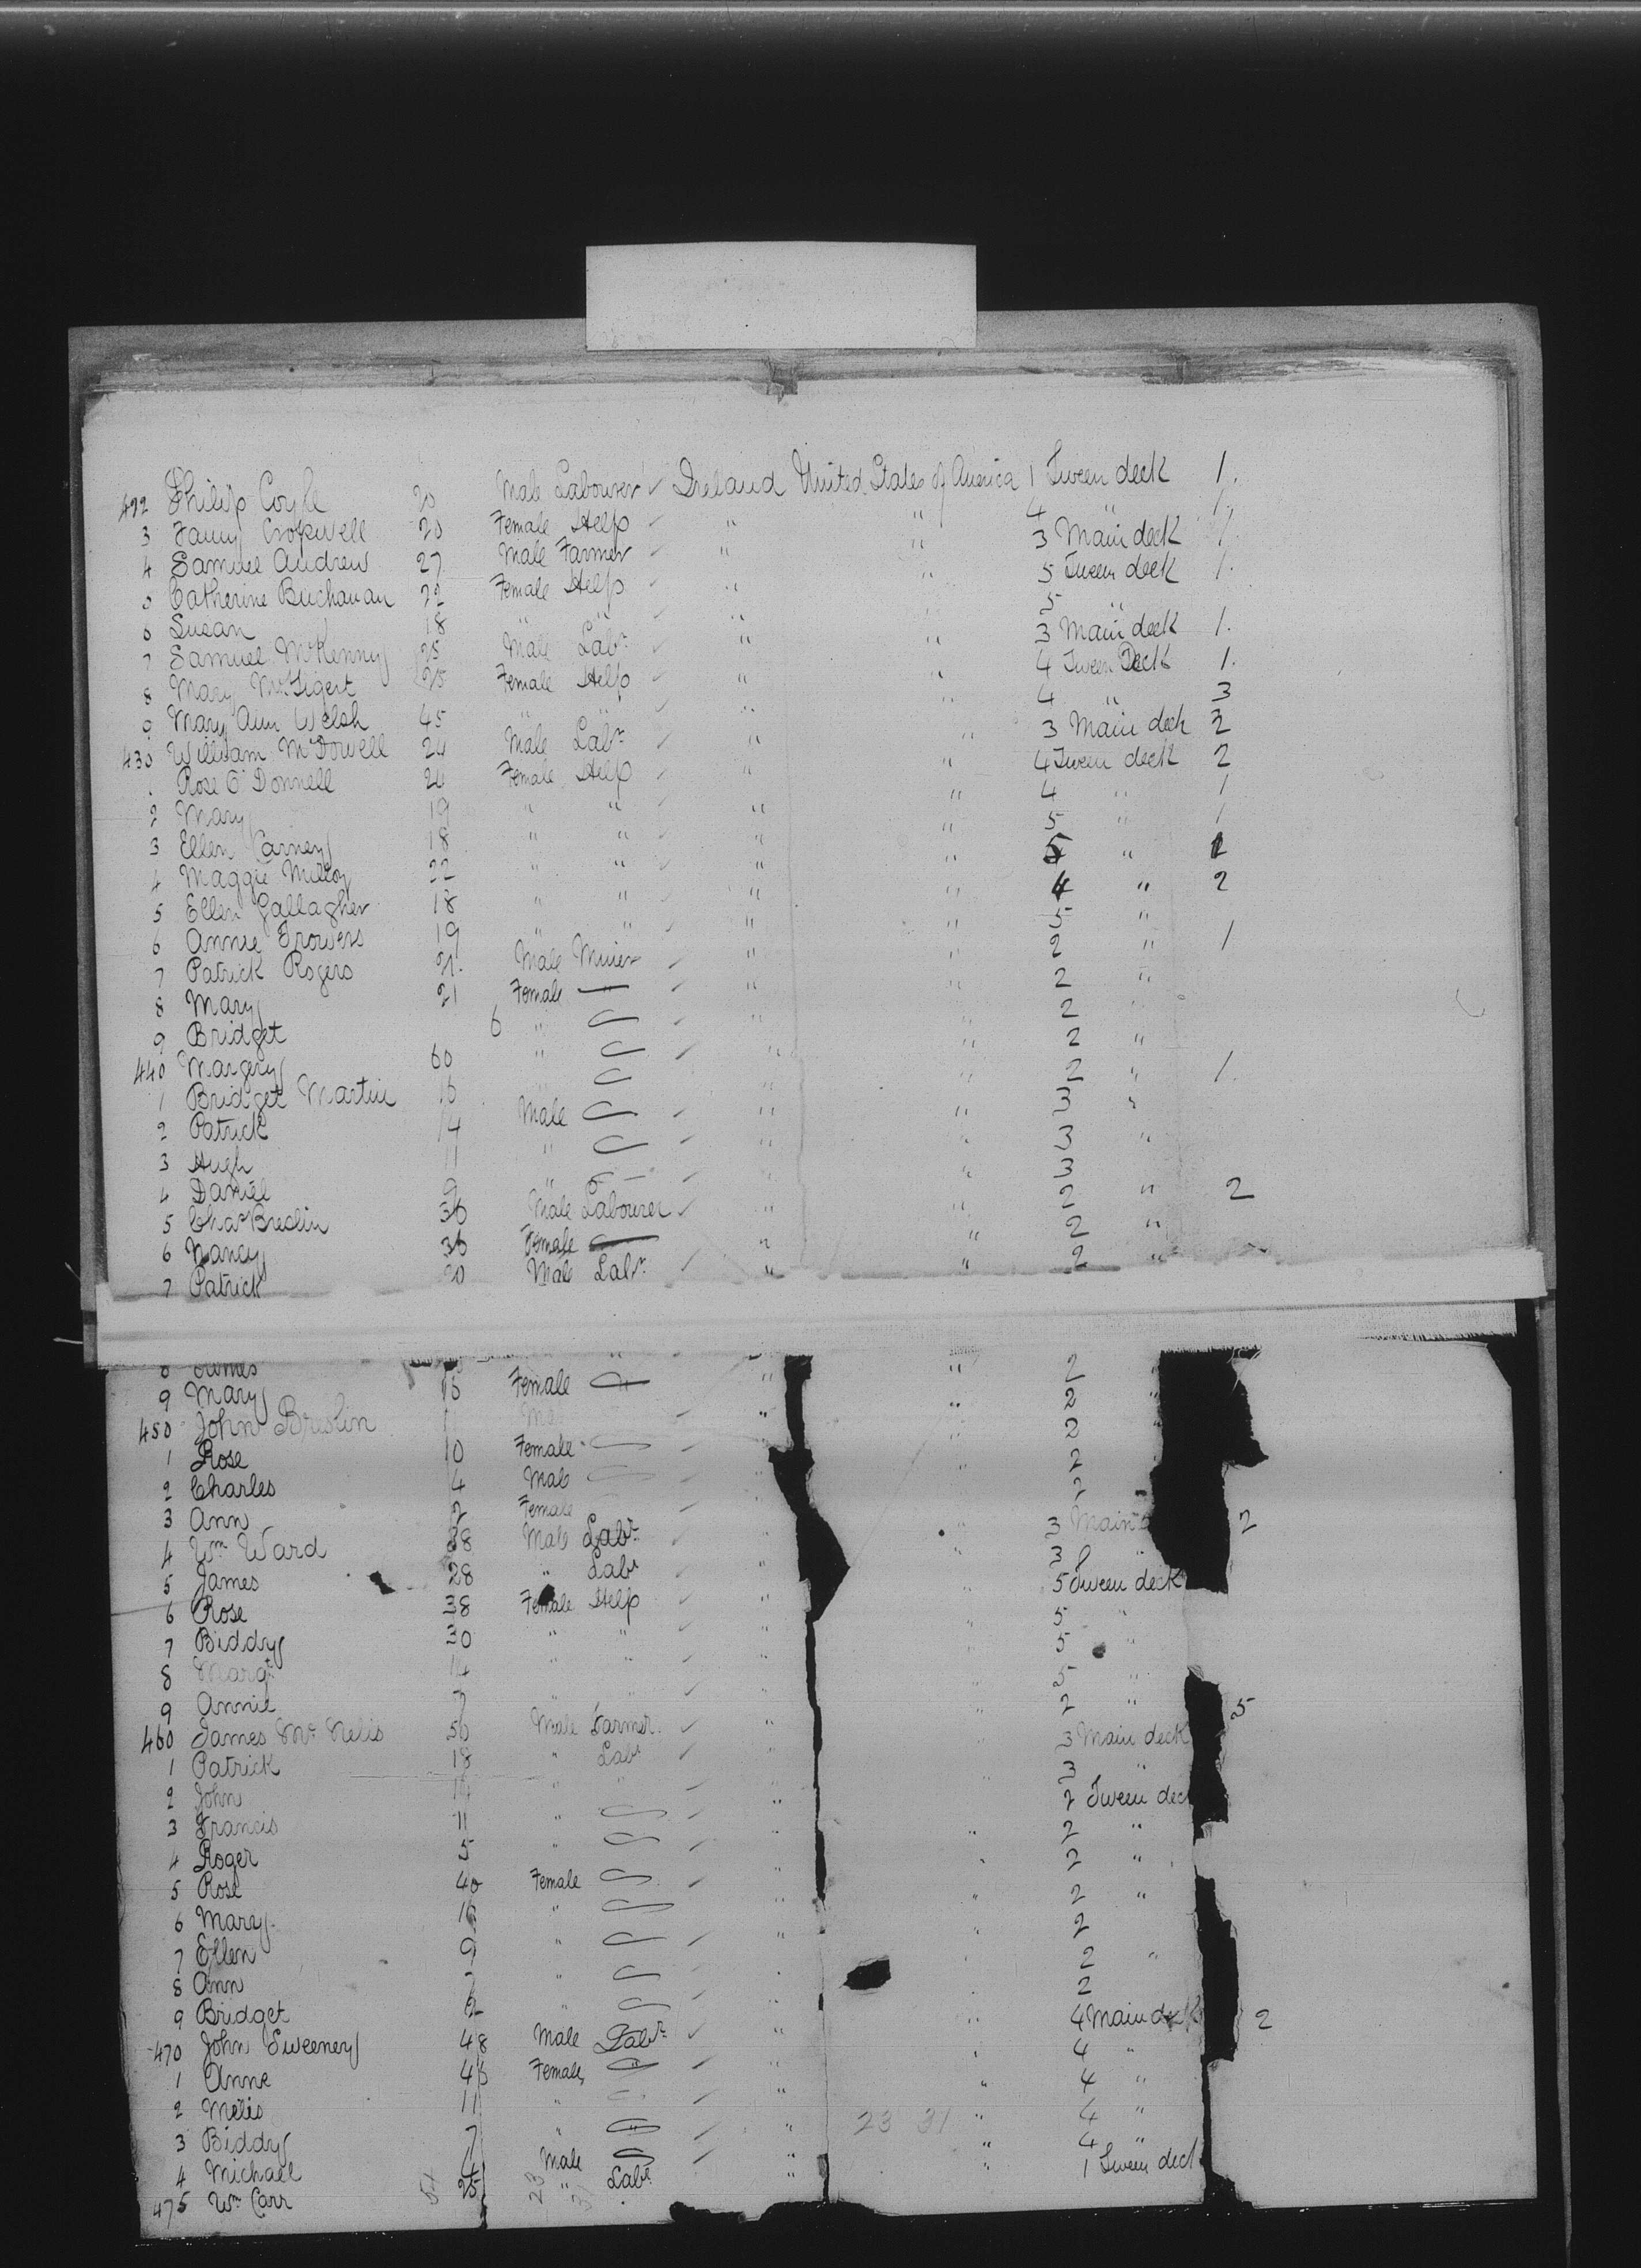 422 Philip Coyle 20 Male Labourer ✓ Ireland United States of America 1 Tween deck 1.
3 Fanny Cropwell 20 Female Help ✓ " " 4 " 1.
4 Samuel Andrew 27 Male Farmer ✓ " " 3 Main deck 1
5 Catherine Buchanan 22 Female Help ✓ " " 5 Tween deck 1.
6 Susan 18 " " ✓ " " 5 "
7 Samuel McKenny 25 Male Labr ✓ " " 3 Main deck 1.
8 Mary 25 Female Help ✓ " " 4 Tween Deck 1.
9 Mary Ann Welsh 45 " " ✓ " " 4 " 3
430 William McDowell 24 Male Labr ✓ " " 3 Main deck 2
Rose O'Donnell 24 Female Help ✓ " " 4 Tween deck 2
2 Mary 19 " " ✓ " " 4 " 1
3 Ellen Carney 18 " " ✓ " " 5 " 1
4 Maggie 22 " " ✓ " " "
5 Ellen Gallagher 18 " " ✓ " " 4 " 2
6 Annie 19 " " ✓ " " 5 "
7 Patrick Rogers 21. Male Miner ✓ " " 2 " 1
8 Mary 21 Female — ✓ " " 2 "
9 Bridget 6 " ✓ " " 2 "
440 Margery 60 " ✓ " " 2 "
1 Bridget Martin 16 " " 2 " 1.
2 Patrick 14 Male ✓ " " 3 "
3 Hugh 11 " ✓ " " 3 "
4 Daniel 9 " ✓ " " 3
5 Chas Breslin 36 Male Labourer ✓ " " 2 " 2
6 Nancy 36 Female — " " 2 "
7 Patrick 20 Male Labr ✓ " " 2 "
8 James " " 2
9 Mary 16 Female " " 2 "
450 John Breslin 11 ✓ " " 2
1 Rose 10 Female ✓ " 2
2 Charles 4 Male " 2
3 Ann 2 Female ✓ "
4 Wm Ward 38 Male Labr " 3 Main 2
5 James 28 " Labr " " 3 "
6 Rose 38 Female Help ✓ " " 5 Tween deck
7 Biddy 30 " " ✓ " " 5 "
8 Margt 14 " " " 5 "
9 Annie 7 " " ✓ " " 5 "
460 James McNelis 50 Male Farmer. ✓ " 2 " 5
1 Patrick 18 " Labr ✓ " 3 Main deck
2 John 14 " " ✓ " " 3 "
3 Francis 11 " ✓ " 2 Tween deck
4 Roger 5 " ✓ " " 2 "
5 Rose 40 Female ✓ " " 2 "
6 Mary 16 " " " 2 "
7 Ellen 9 " ✓ " " 2
8 Ann 7 " " 2 "
9 Bridget 2 " ✓ " 2
470 John Sweeney 48 Male Labr ✓ " " 4 Main deck 2
1 Anne 45 Female, ✓ " 4 "
2 11 " ✓ " " 4 "
3 Biddy 7 " ✓ " 23 31 " 4 "
4 Michael 4 Male ✓ " " 4 "
475 Wm Carr 25 " Labr " " 1 Tween deck